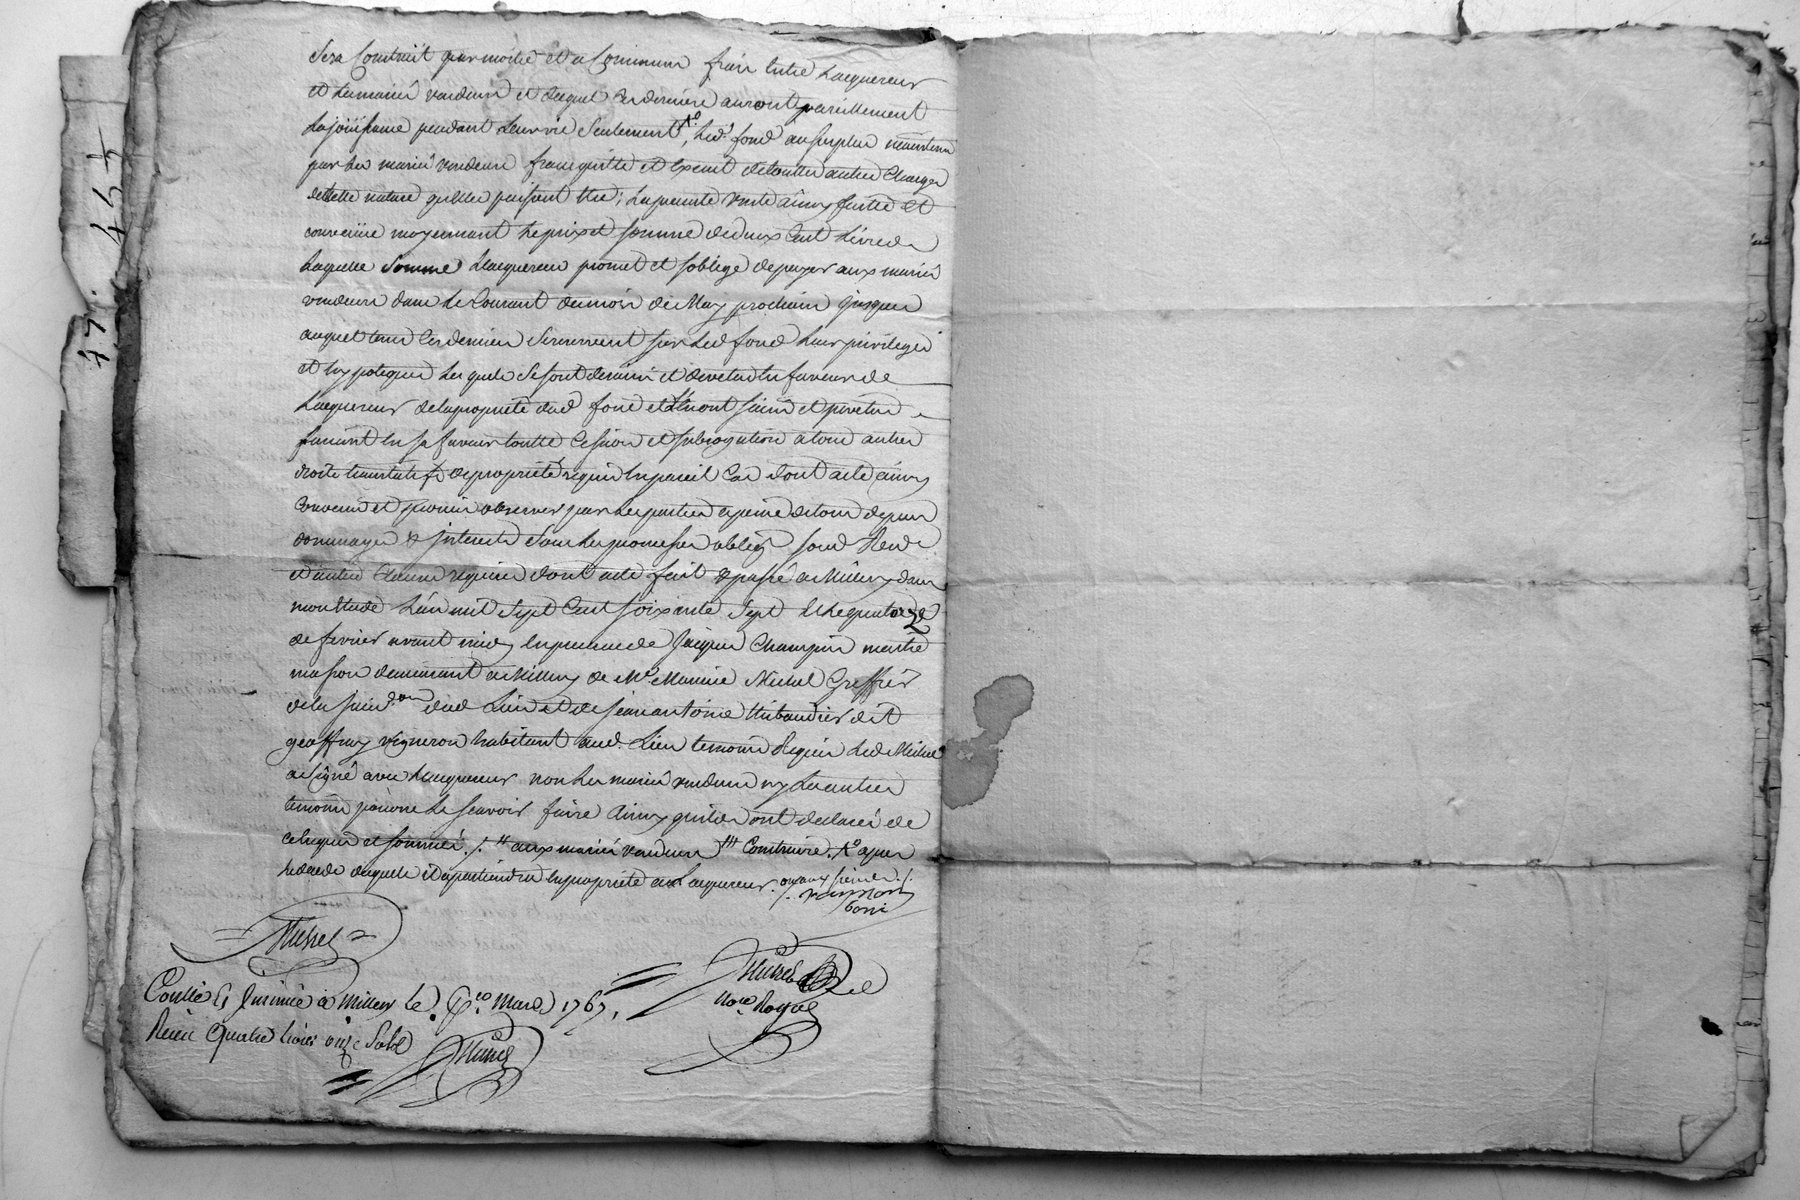 sera Construit par moitié et a Commun frais Entre Lacquereur
et Lesmariés vendeurs et duquel Ces derniers auront pareillement
La joüissance pendant Leur vie Seulement, Led. fond au surplus
par Les mariés vendeurs franc quitte et Exempt de touttes autres Charges
de telle nature qu'elles puissent Etre; La presente vente ainsy faitte et
convenüe moyennant Le prix et somme de deux Cent Livres
Laquelle Somme Lacquereur promet et soblige de payer aux mariés
vendeurs dans Le Courant du mois de May prochain jusques
auquel tems Ces derniers se reservent sur Led fond Leurs privileges
et hypoteques Lesquels se sont demis et devetus En faveur de
Lacquereur de la proprieté dud fond et L'en ont saisi et
faisant En sa faveur toutte Cession et subrogation a tous autres
droits translatifs de proprieté requis En pareil Cas dont acte ainsy
Convenu et promis observer par Les parties a peine de tous depens
dommages & interests sous Les promesses oblig.
et autres Clauses requises dont acte fait & passé a Millery dans
mon Etude L'an mil sept Cent soixante sept et Le quatorze
de fevrier avant midy En presence de Jacques Champin maitre
masson demeurant a Millery de Me. Michel Greffier
de la juridon dud Lieu et de jean antoine thibaudier dit
geoffray vigneron habitant aud. Lieu temoins Requis Led Michel
a signé avec Lacquereur non Les mariés vendeurs ny Lautre
temoin pour ne Le scavoir faire Ainsy qu'ils ont declaré de
ce requis et sommés ./. " aux mariés vendeurs "' Construire.
deces duquel il apartiendra En proprieté a Lacquereur.
Michel
nore. Royal
Conllé & insinué à Millery Le mars 1767,
Receu quatre livres onze Sols
77. 45